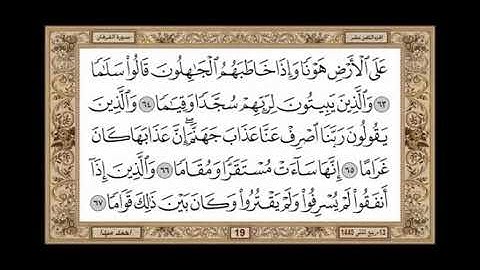 سورة الفرقان
الجزء التاسع عشر
عَلَى ٱلْأَرْضِ هَوْنًا وَإِذَا خَاطَبَهُمُ ٱلْجَٰهِلُونَ قَالُوا۟ سَلَٰمًا
٦٣ وَٱلَّذِينَ يَبِيتُونَ لِرَبِّهِمْ سُجَّدًا وَقِيَٰمًا ٦٤ وَٱلَّذِينَ
يَقُولُونَ رَبَّنَا ٱصْرِفْ عَنَّا عَذَابَ جَهَنَّمَ ۖ إِنَّ عَذَابَهَا كَانَ
غَرَامًا ٦٥ إِنَّهَا سَآءَتْ مُسْتَقَرًّا وَمُقَامًا ٦٦ وَٱلَّذِينَ إِذَآ
أَنفَقُوا۟ لَمْ يُسْرِفُوا۟ وَلَمْ يَقْتُرُوا۟ وَكَانَ بَيْنَ ذَٰلِكَ قَوَامًا ٦٧
19